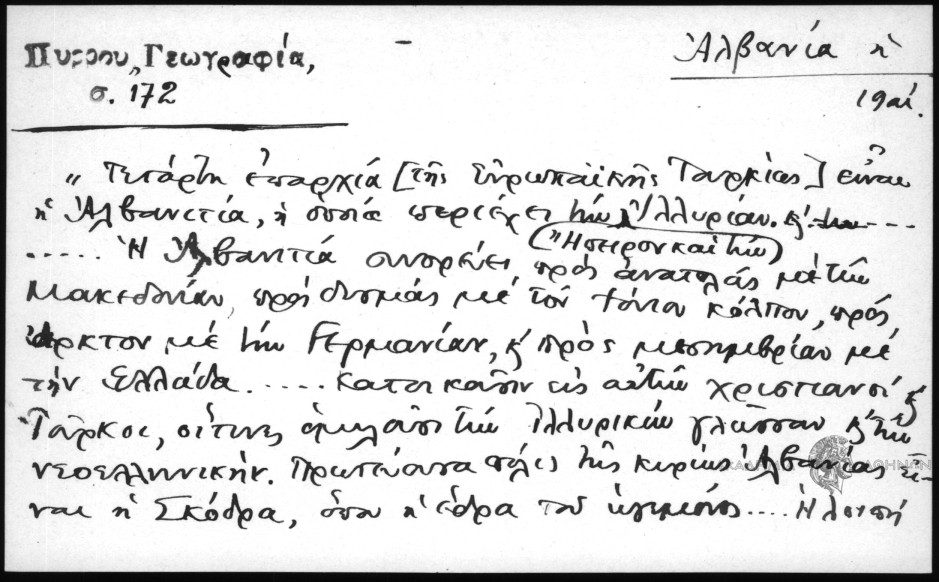 Πύρρου, Γεωγραφία,
σ. 172
Ἀλβανία ἡ
19 αἰ.
„ Τετάρτη ἐπαρχία [τῆς Εὐρωπαϊκῆς Τουρκίας] εἶναι
ἡ Ἀλβανιτία, ἡ ὁποία περιέχει τὴν Ἰλλυρίαν. ......
(Ἤπειρον καὶ τὴν)
..... Ἡ Ἀλβανιτία συνορεύει πρὸς ἀνατολὰς μὲ τὴν
Μακεδονίαν, πρὸς δυσμὰς μὲ τὸν Ἰόνιον κόλπον, πρὸς
ἄρκτον μὲ τὴν Γερμανίαν, & πρὸς μεσημβρίαν μὲ
τὴν Ἑλλάδα ..... κατοικοῦσιν εἰς αὐτὴν χριστιανοί &
Τοῦρκοι, οἵτινες ὁμιλοῦσι τὴν Ἰλλυρικὴν γλῶσσαν & τὴν
νεοελληνικήν. Πρωτεύουσα πόλις τῆς κυρίως Ἀλβανίας εἶ-
ναι ἡ Σκόδρα, ὅπου ἡ ἕδρα τοῦ ἡγεμόνος .... Ἡ λοιπὴ